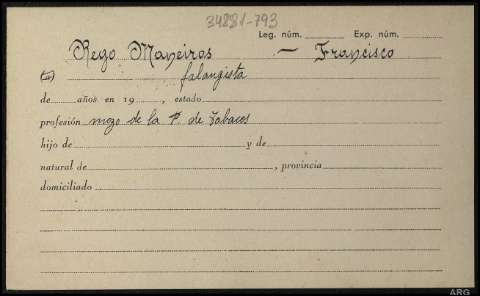 34881-793
Leg. núm. Exp. núm.
Rego Maneiros — Francisco
(a) falangista
de años en 19 , estado
profesión mozo de la F. de Tabacos
hijo de y de
natural de , provincia
domiciliado
ARG